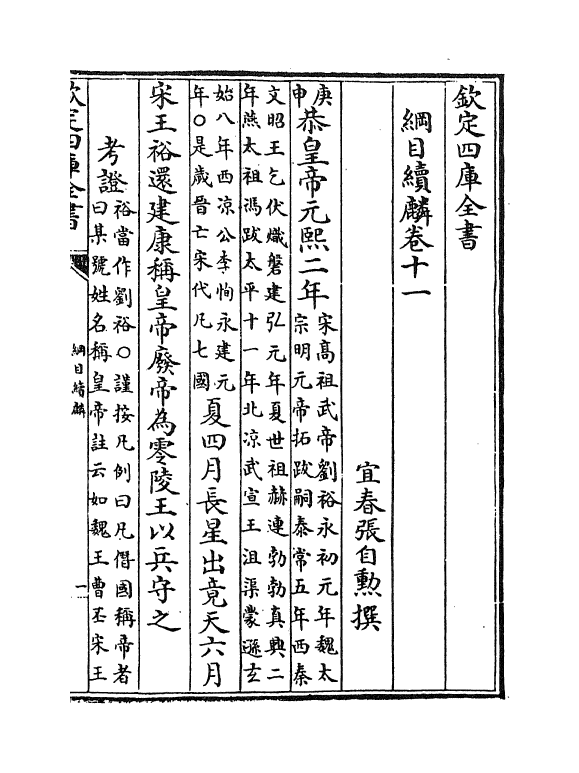 欽定四庫全書
綱目續麟卷十一
宜春張自勲撰
庚申
恭皇帝元熙二年
宋髙祖武帝劉裕永初元年魏太
宗明元帝拓跋嗣泰常五年西秦
文昭王乞伏熾磐建弘元年夏世祖赫連勃勃真興二
年燕太祖馮跋太平十一年北涼武宣王沮渠蒙遜玄
始八年西涼公李恂永建元
年○是歲晉亡宋代凡七國
夏四月長星出竟天六月
宋王裕還建康稱皇帝廢帝為零陵王以兵守之
考證
裕當作劉裕○謹按凡例曰凡僭國稱帝者
曰某號姓名稱皇帝註云如魏王曹丕宋王
欽定四庫全書
綱目續麟
一